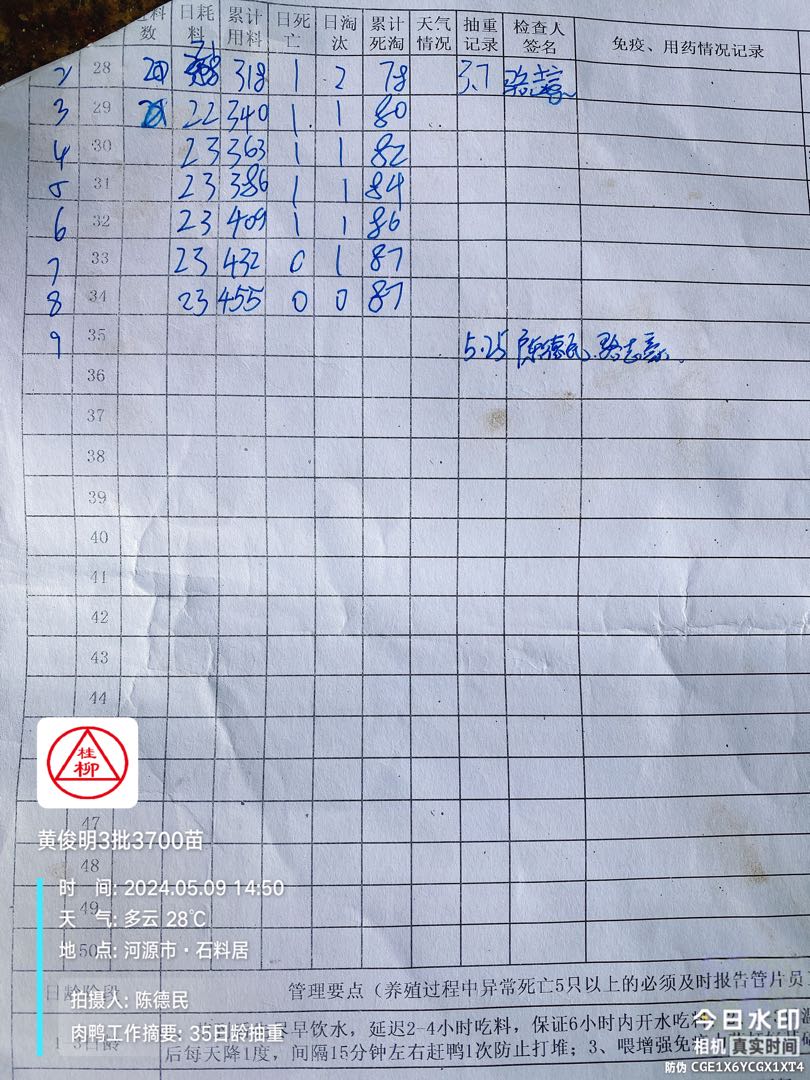 料 日耗 累计 日死 日淘 累计 天气 抽重 检查人 免疫、用药情况记录
数 料 用料 亡 汰 死淘 情况 记录 签名
2 28 20 318 1 2 78 3.7
3 29 22 340 1 1 80
4 30 23 363 1 1 82
5 31 23 386 1 1 84
6 32 23 409 1 1 86
7 33 23 432 0 1 87
8 34 23 455 0 0 87
9 35 5.25 陈德民
36
37
38
39
40
41
42
43
44
桂
柳
47
黄俊明3批3700苗
48
时 间: 2024.05.09 14:50
49
天 气: 多云 28℃
地 点: 河源市·石料居
50
日龄阶段 管理要点（养殖过程中异常死亡5只以上的必须及时报告管片员
拍摄人: 陈德民
早饮水，延迟2-4小时吃料，保证6小时内开水吃料
肉鸭工作摘要: 35日龄抽重
后每天降1度，间隔15分钟左右赶鸭1次防止打堆；3、喂增强免疫
今日水印
相机 真实时间
防伪 CGE1X6YCGX1XT4